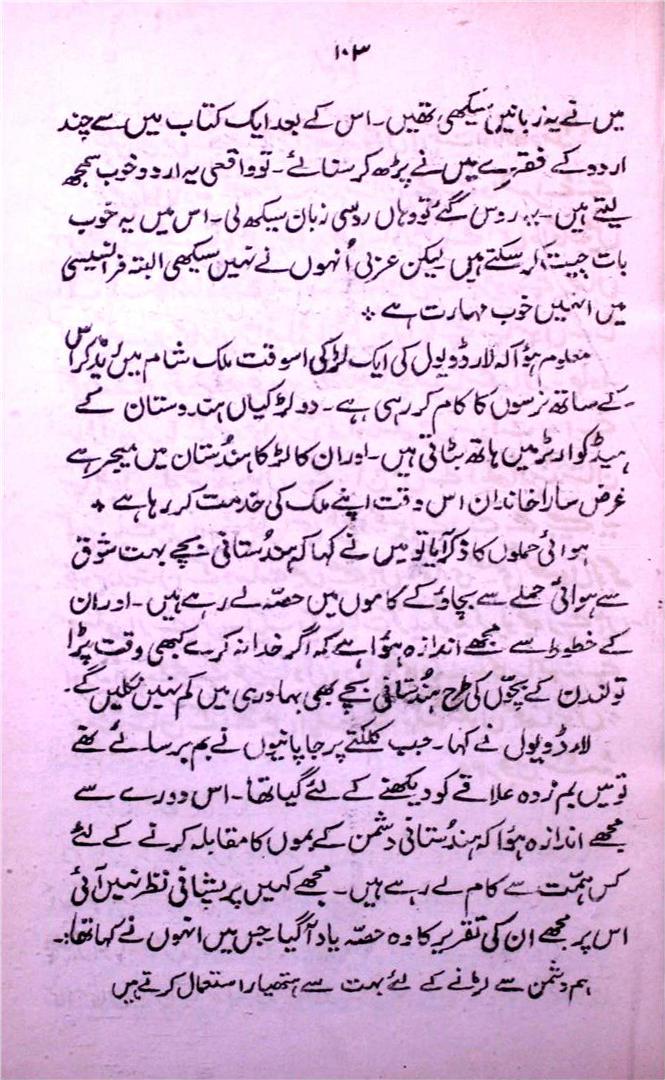 ۱۰۳
میں نے یہ زبانیں سیکھی تھیں۔ اس کے بعد ایک کتاب میں سے چند
اردو کے فقرے میں نے پڑھ کر سنائے۔ تو واقعی یہ اردو خوب سمجھ
لیتے ہیں۔ روس گئے تو وہاں روسی زبان سیکھ لی۔ اس میں یہ خوب
بات چیت کر سکتے ہیں لیکن عربی اُنہوں نے نہیں سیکھی البتہ فرانسیسی
میں انہیں خوب مہارت ہے ٭
معلوم ہؤا کہ لارڈ ویول کی ایک لڑکی اسوقت ملک شام میں ریڈ کراس
کے ساتھ نرسوں کا کام کر رہی ہے۔ دو لڑکیاں ہندوستان کے
ہیڈ کوارٹر میں ہاتھ بٹاتی ہیں۔ اور ان کا لڑکا ہندُستان میں میجر ہے
غرض سارا خاندان اس وقت اپنے ملک کی خدمت کر رہا ہے ٭
ہوائی حملوں کا ذکر آیا تو میں نے کہا کہ ہندُستانی بچے بہت شوق
سے ہوائی حملے سے بچاؤ کے کاموں میں حصّہ لے رہے ہیں۔ اور ان
کے خطوط سے مجھے اندازہ ہؤا ہے کہ اگر خدا نہ کرے کبھی وقت پڑا
تو لندن کے بچّوں کی طرح ہندُستانی بچے بھی بہادری میں کم نہیں نکلیں گے۔
لارڈ ویول نے کہا۔ جب کلکتے پر جاپانیوں نے بم برسائے تھے
تو میں بم زدہ علاقے کو دیکھنے کے لئے گیا تھا۔ اس دورے سے
مجھے اندازہ ہؤا کہ ہندُستانی دشمن کے بموں کا مقابلہ کرنے کے لئے
کس ہمّت سے کام لے رہے ہیں۔ مجھے کہیں پریشانی نظر نہیں آئی
اس پر مجھے ان کی تقریر کا وہ حصّہ یاد آگیا جس میں انہوں نے کہا تھا:۔
ہم دشمن سے لڑنے کے لئے بہت سے ہتھیار استعمال کرتے ہیں